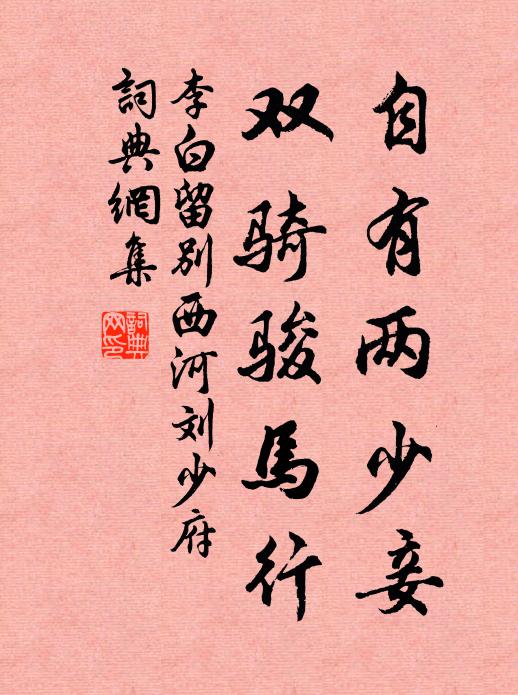 自有两少妾
双骑骏馬行
李白留别西河刘少府
詞典網集
詞典
网印